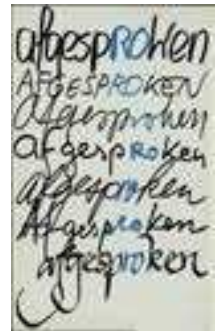 afgesproken
AFGESPROKEN
afgesproken
afgesproken
afgesproken
Afgesproken
afgesproken